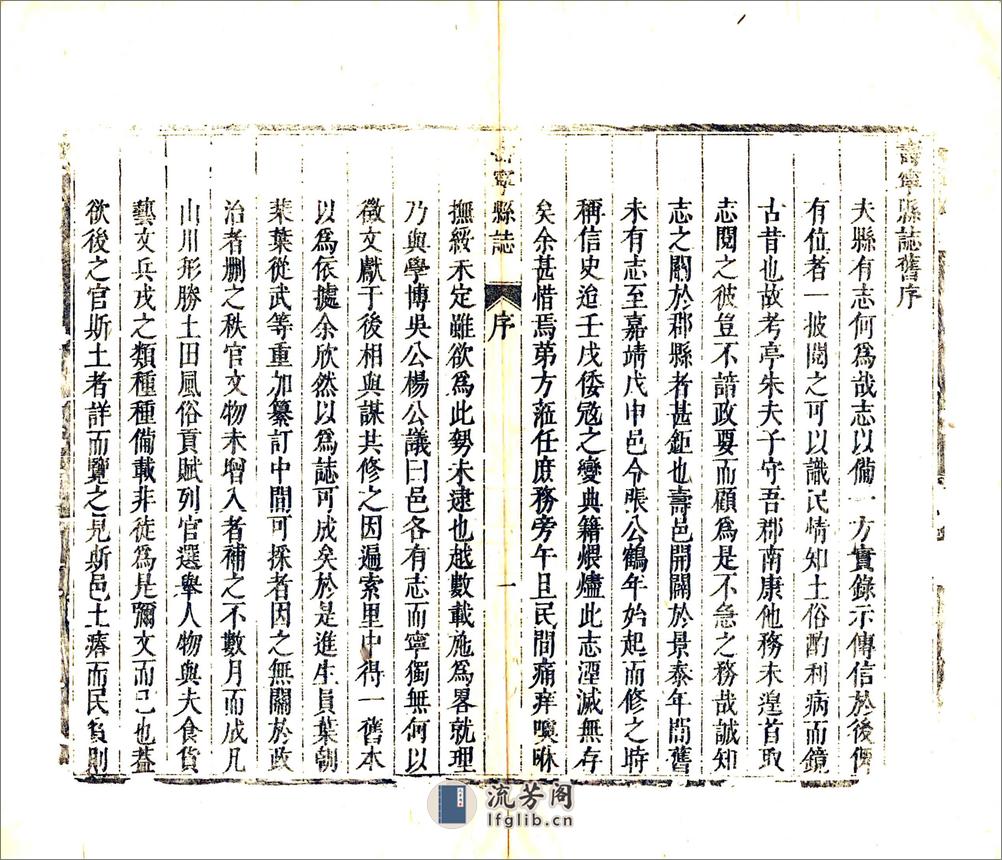 壽寧縣誌舊序
夫縣有志何爲哉志以備一方實錄示傳信於後俾
有位者一披閱之可以識民情知土俗酌利病而鏡
古昔也故考亭朱夫子守吾郡南康他務未遑首取
志閱之彼豈不諳政要而顧爲是不急之務哉誠知
志之關於郡縣者甚鉅也壽邑開闢於景泰年間舊
未有志至嘉靖戊申邑令張公鶴年始起而修之時
稱信史迨壬戌倭寇之變典籍煨燼此志湮滅無存
矣余甚惜焉第方蒞任庶務旁午且民間痛痒噢咻
寧縣誌
序
一
撫綏未定雖欲爲此勢未逮也越數載施爲畧就理
乃與學博吳公楊公議曰邑各有志而寧獨無何以
徵文獻于後相與謀共修之因遍索里中得一舊本
以爲依據余欣然以爲誌可成矣於是進生員葉朝
葉葉從武等重加纂訂中間可採者因之無關於政
治者刪之秩官文物未增入者補之不數月而成凡
山川形勝土田風俗貢賦列官選舉人物與夫食貨
藝文兵戎之類種種備載非徒爲是彌文而已也蓋
欲後之官斯土者詳而覽之見斯邑土瘠而民貧則
流芳阁
lfglib.cn